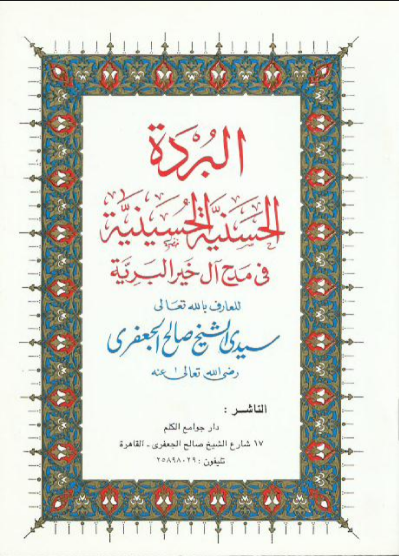 البُرْدَة
الحَسَنيَّة الحُسينيَّة
فى مدح آل خير البريَّة
للعارف بالله تعَالى
سيدى الشيخ صالح الجعفرى
رضى الله تعالى عنه
الناشر :
دار جوامع الكلم
١٧ شارع الشيخ صالح الجعفرى - القاهرة
تليفون : ٢٥٨٩٨٠٢٩